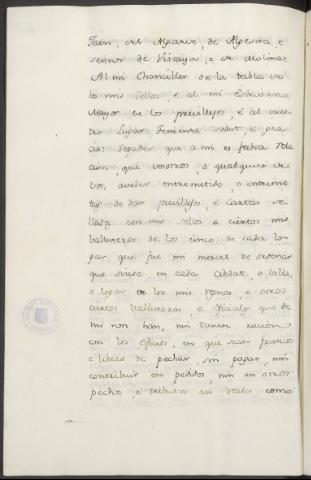 Jaen, del Algarve, de Algesira, e
sennor de Viscaya, e de Molina:
Al mi Chanciller de la tabla de
los mis sellos: e al mi Escrivano
Mayor de los previllejos, e al vues
tro Lugar Teniente salut, e gra
cia: Sepades que a mi es fecha Rela
cion, que vosotros, o qualquier de
vos, avedes entremetido, o entreme
tes de dar previllejos, e Cartas se
lladas con mis sellos a ciertos mis
ballesteros de los cinco de cada lo
gar que fue mi merced de ordenar
que oviese en cada Cibdat, o Villa,
o logar de los mis regnos, e otros
ciertos Ballesteros, e oficiales que de
mi non han, nin tienen racion
con los oficios, en que sean francos
e libres de pechar, nin pagar, nin
contribuir en pedidos, nin en otros
pechos e tributos en como